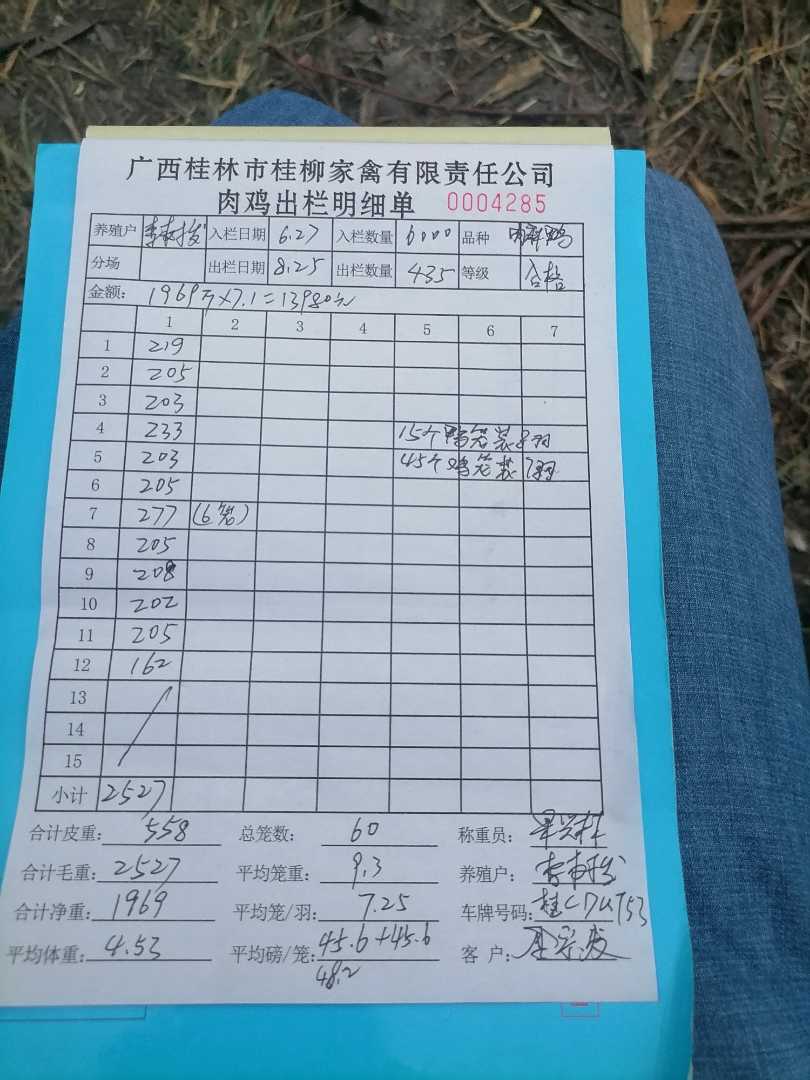 广西桂林市桂柳家禽有限责任公司
肉鸡出栏明细单 0004285
养殖户 入栏日期 6.27 入栏数量 6000 品种
分场 出栏日期 8.25 出栏数量 435 等级 合格
金额: 1969斤×7.1=13980元
1 2 3 4 5 6 7
1 219
2 205
3 203
4 233 15个鸭笼装8羽
5 203 45个鸡笼装7羽
6 205
7 277 (6笼)
8 205
9 208
10 202
11 205
12 162
13
14
15
小计 2527
合计皮重: 558 总笼数: 60 称重员:
合计毛重: 2527 平均笼重: 9.3 养殖户:
合计净重: 1969 平均笼/羽: 7.25 车牌号码:
平均体重: 4.53 平均磅/笼: 45.6+45.6 客 户:
48.2